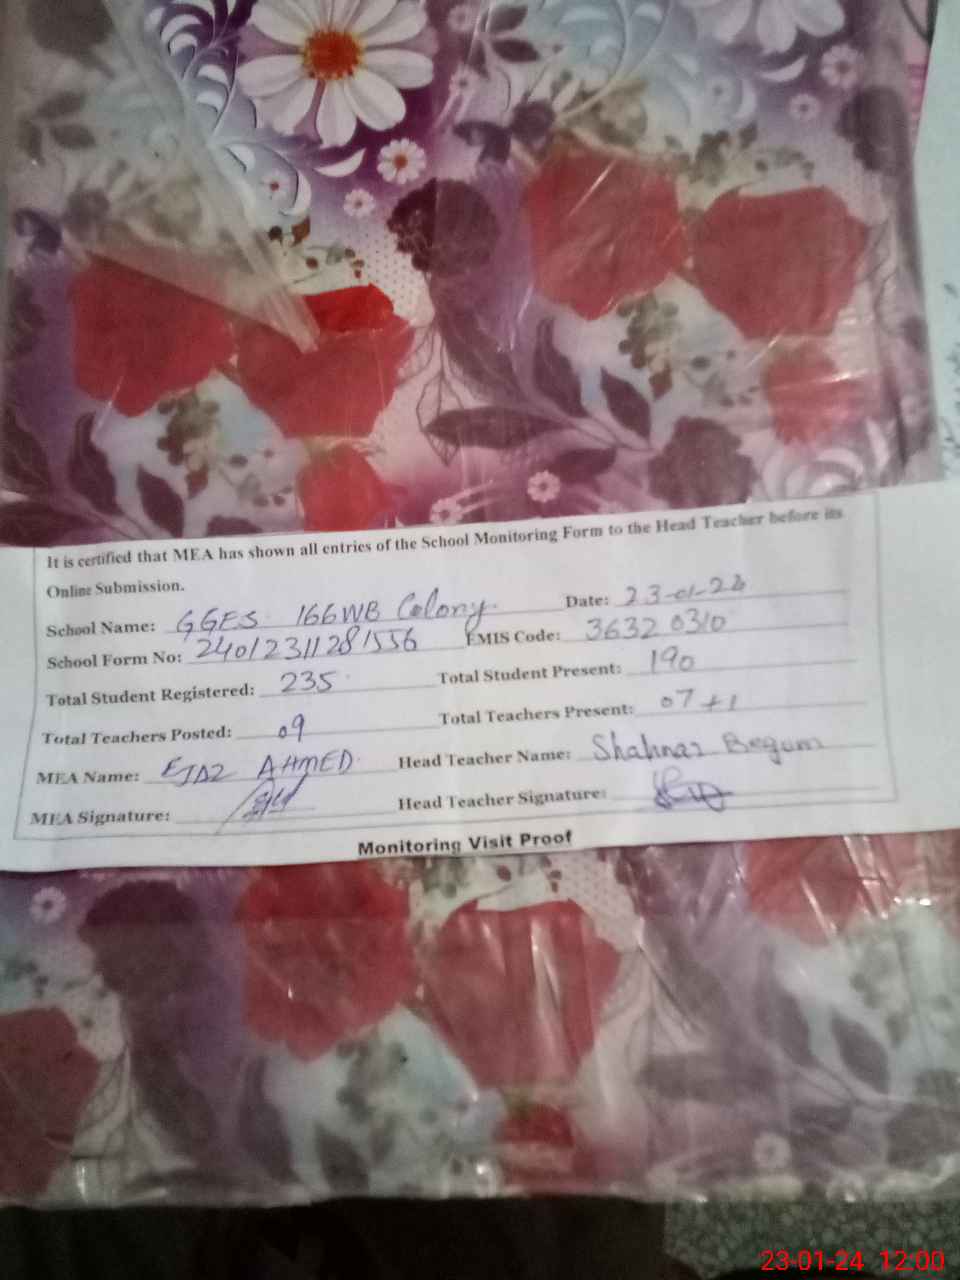 It is certified that MEA has shown all entries of the School Monitoring Form to the Head Teacher before its
Online Submission.
School Name: GGES 166WB Colony. Date: 23-01-24
School Form No: 24012311281556 EMIS Code: 36320310
Total Student Registered: 235 Total Student Present: 190
Total Teachers Posted: 09 Total Teachers Present: 07+1
MEA Name: EJAZ AHMED Head Teacher Name: Shahnaz Begum
MEA Signature: Head Teacher Signature:
Monitoring Visit Proof
23-01-24 12:00